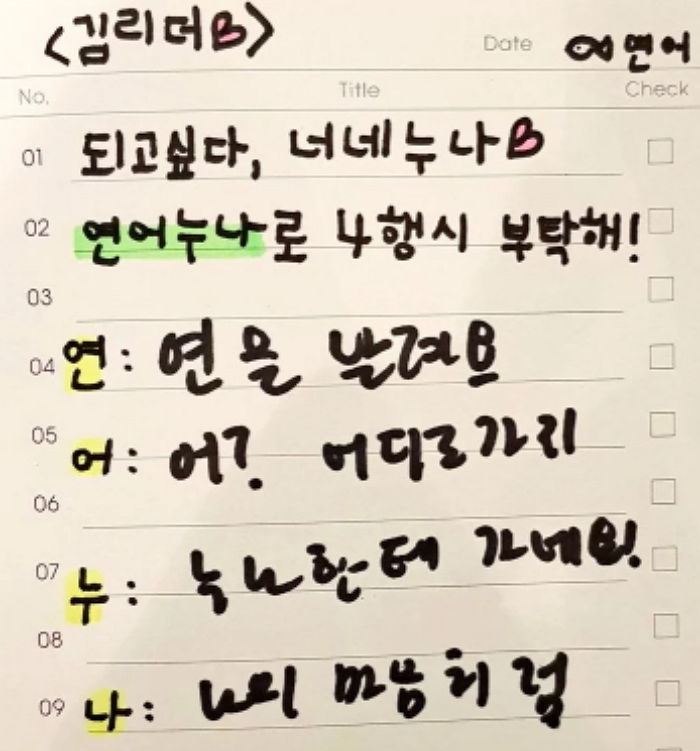 <김리더♡>
Date 연어
No. Title Check
01 되고싶다, 너네누나♡
02 연어누나로 4행시 부탁해!
03
04 연: 연을 날려요
05 어: 어? 어디로가리
06
07 누: 누나한테 가네요!
08
09 나: 나의 마음처럼